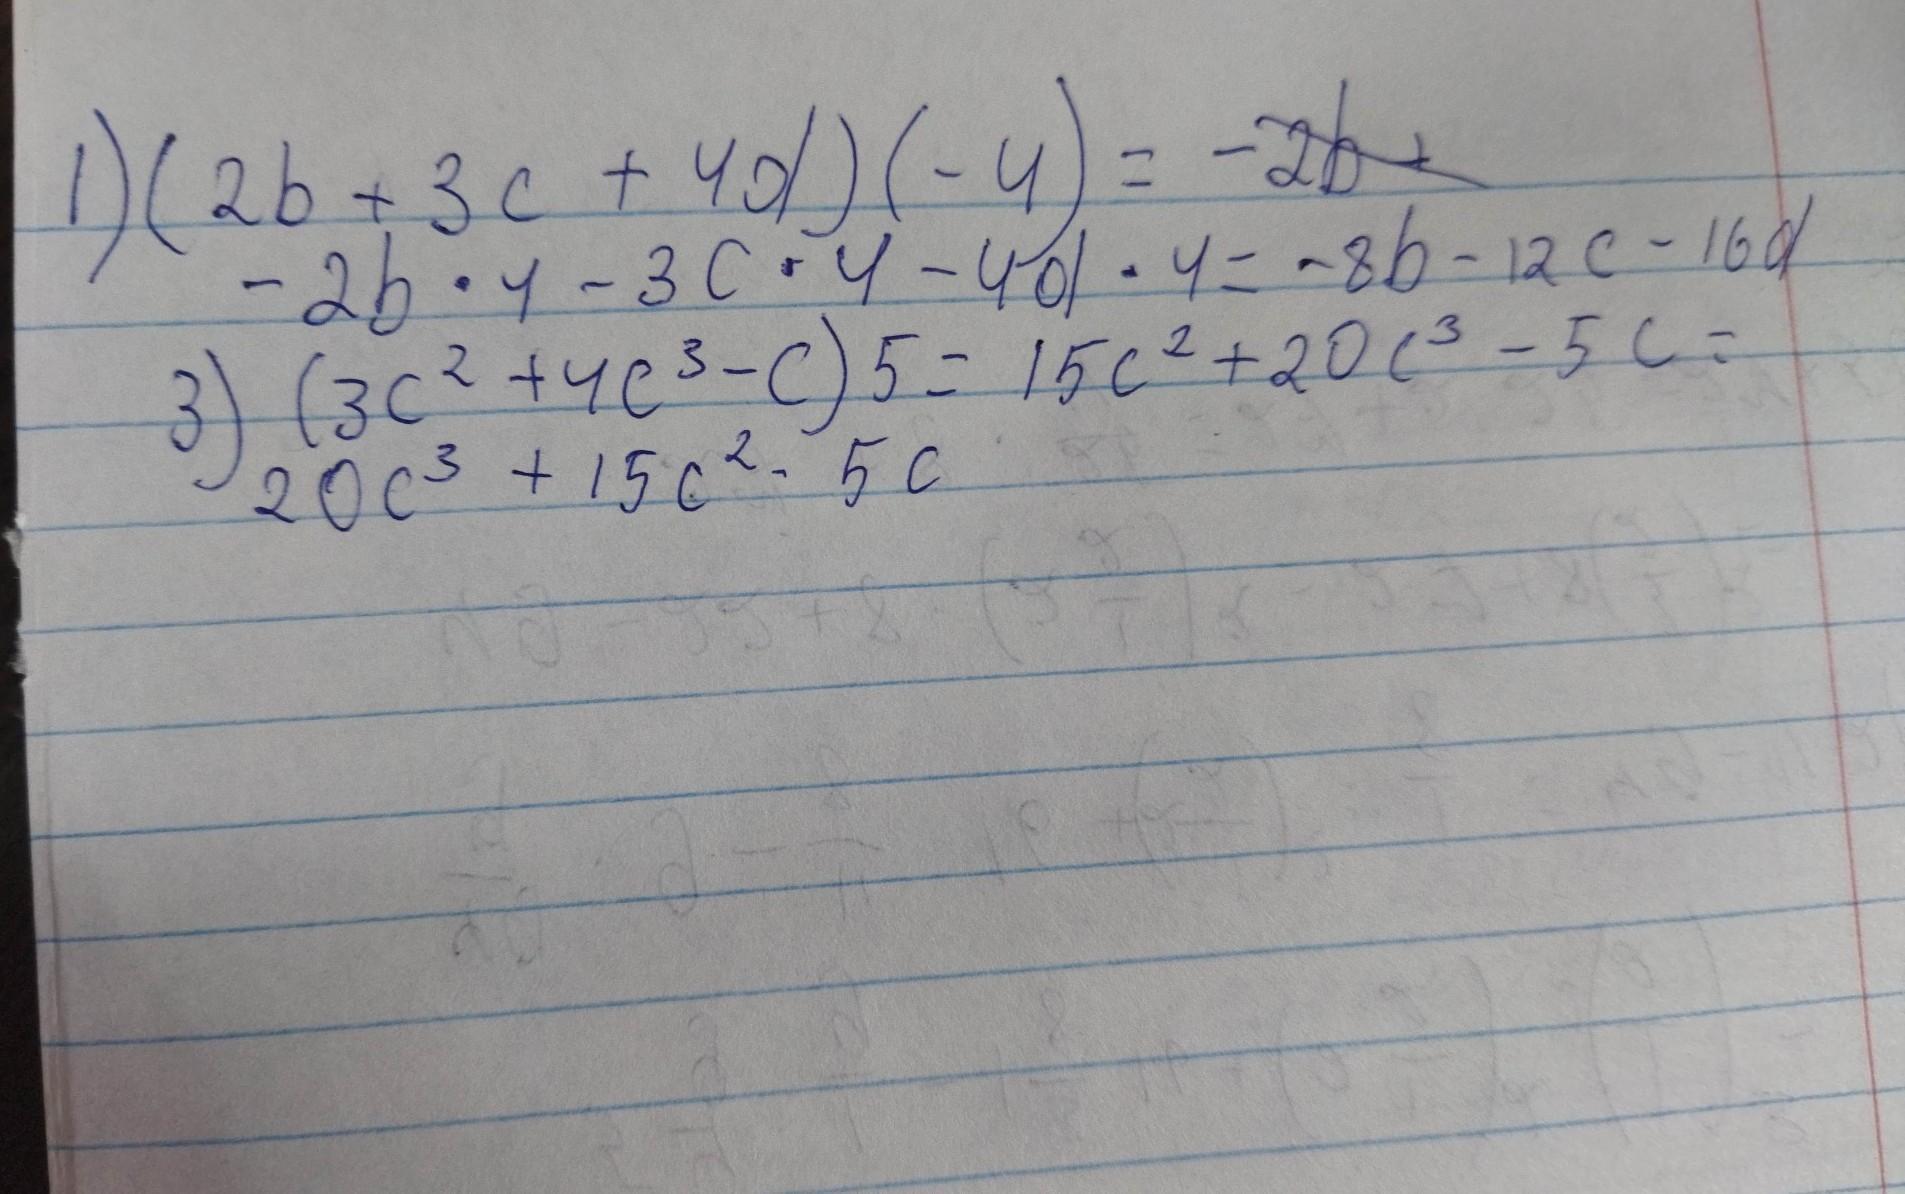 1) (2b + 3c + 4d)(-4) = -2b +
-2b · 4 - 3c · 4 - 4d · 4 = -8b - 12c - 16d
3) (3c² + 4c³ - c) 5 = 15c² + 20c³ - 5c =
20c³ + 15c² - 5c